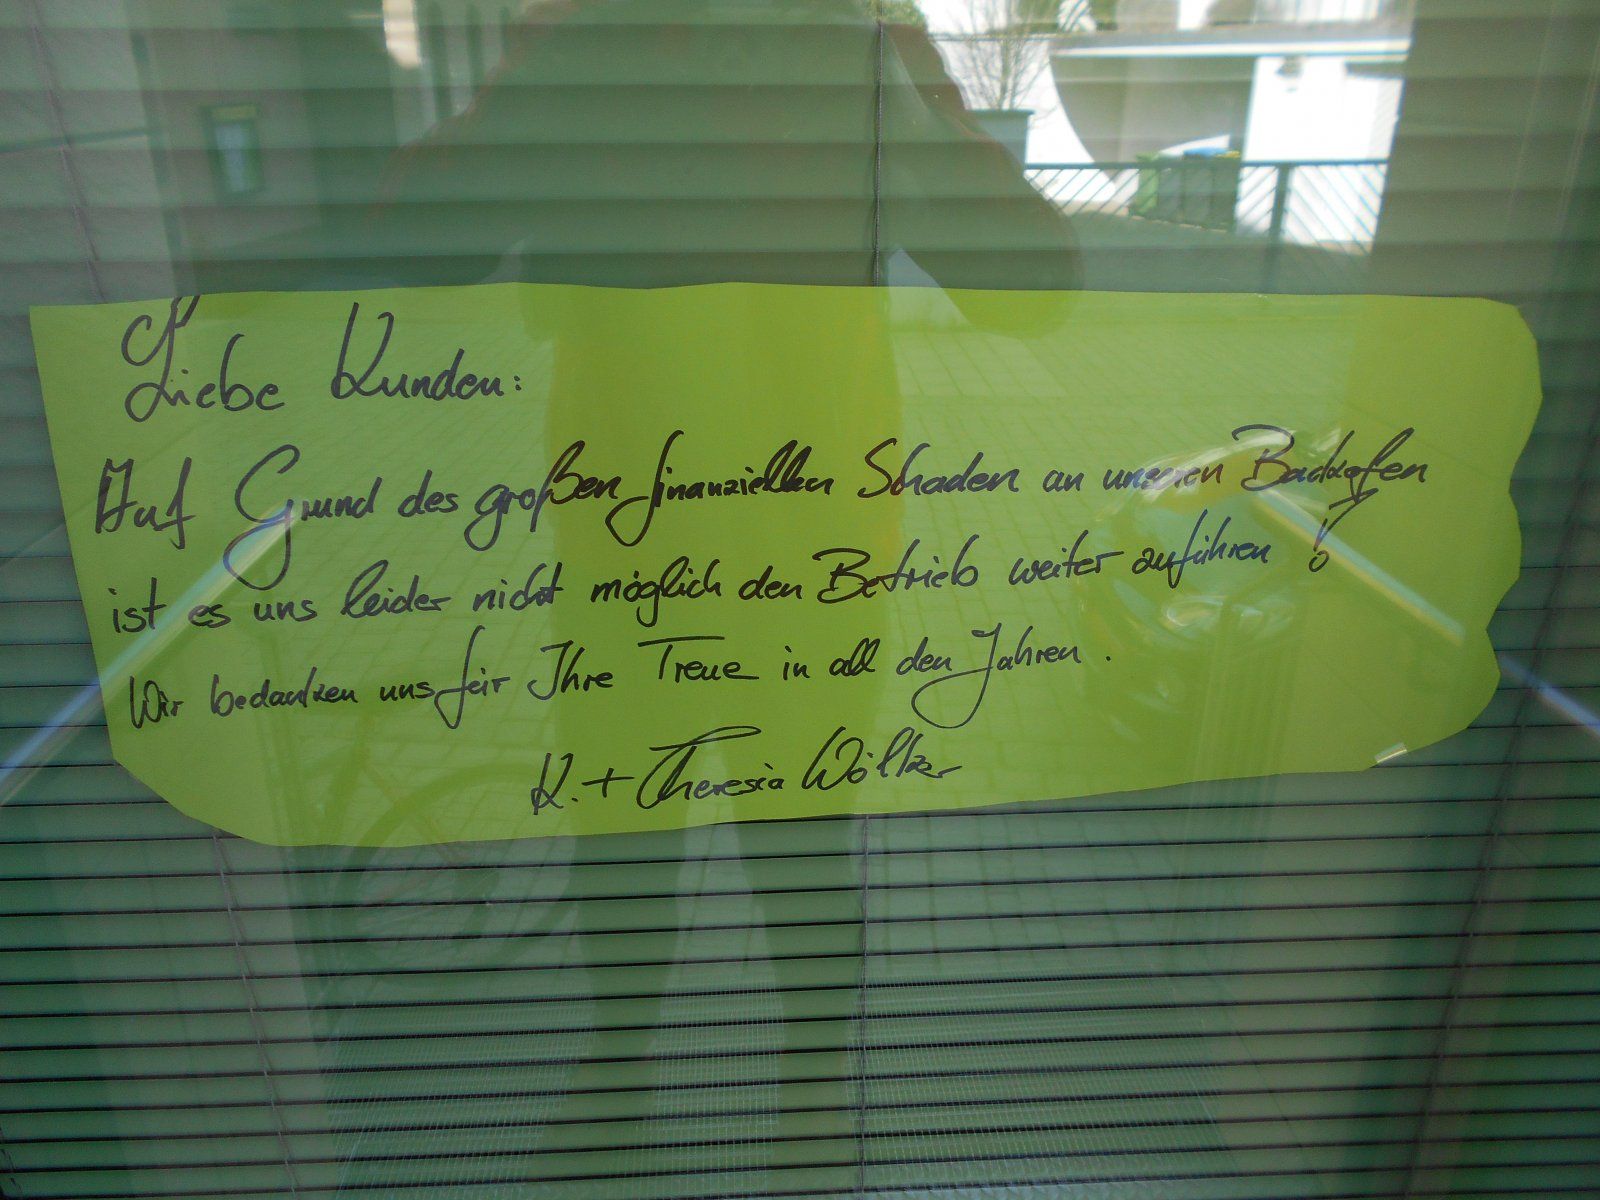 Liebe Kunden:
Auf Grund des großen finanziellen Schaden an unseren Backofen
ist es uns leider nicht möglich den Betrieb weiter zuführen !
Wir bedanken uns für Ihre Treue in all den Jahren .
K. + Theresia Wölker